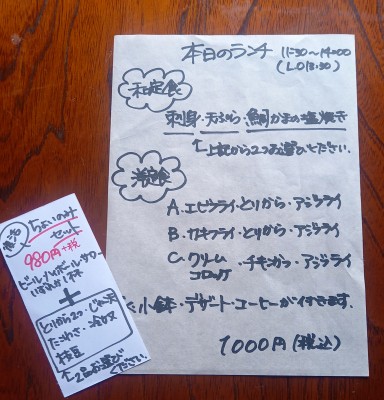 本日のランチ 11:30〜14:00
(L.O 13:30)
和定食
刺身・天ぷら・鯛かまの塩焼き
↑上記から2つお選びください。
洋定食
A. エビフライ・とりから・アジフライ
B. カキフライ・とりから・アジフライ
C. クリームコロッケ・チキンカツ・アジフライ
小鉢・デザート・コーヒーが付きます。
1000円(税込)
ちょいのみ
セット
980円+税
ビール・ハイボール・サワー
いずれか1杯
+
とりから2コ
たこわさ
枝豆
↑2品お選び
ください。